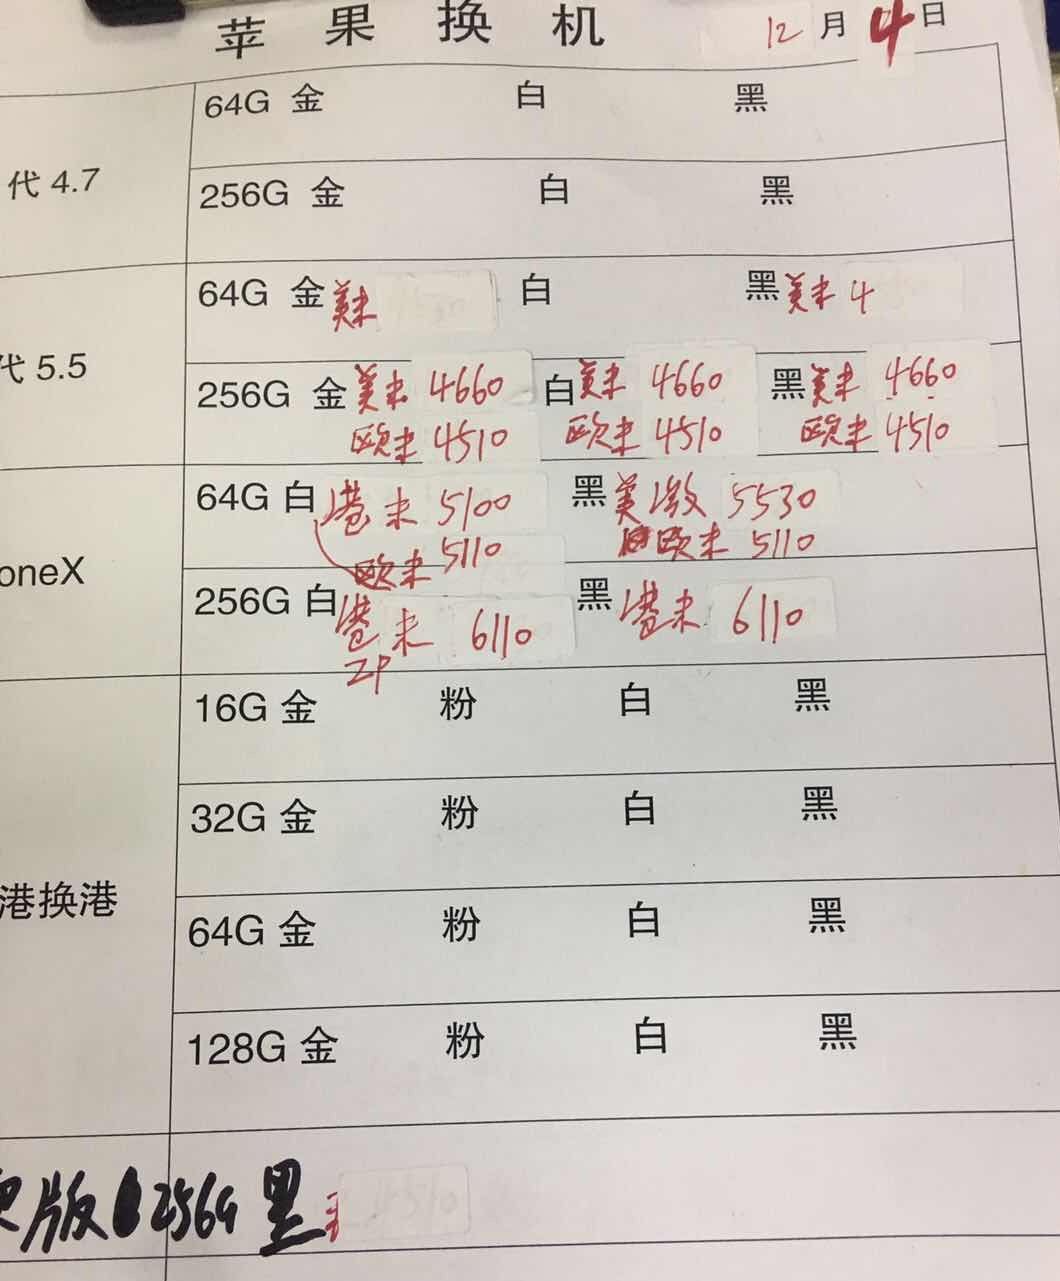 苹果换机 12月4日
64G 金 白 黑
代 4.7
256G 金 白 黑
64G 金 美未 白 黑 美未 4
代 5.5
256G 金 美未 4660 白 美未 4660 黑 美未 4660
欧未 4510 欧未 4510 欧未 4510
64G 白 港未 5100 黑 美激 5530
欧未 5110 欧未 5110
oneX
256G 白 港未 6110 黑 港未 6110
ZP
16G 金 粉 白 黑
32G 金 粉 白 黑
港换港
64G 金 粉 白 黑
128G 金 粉 白 黑
版 256G 黑